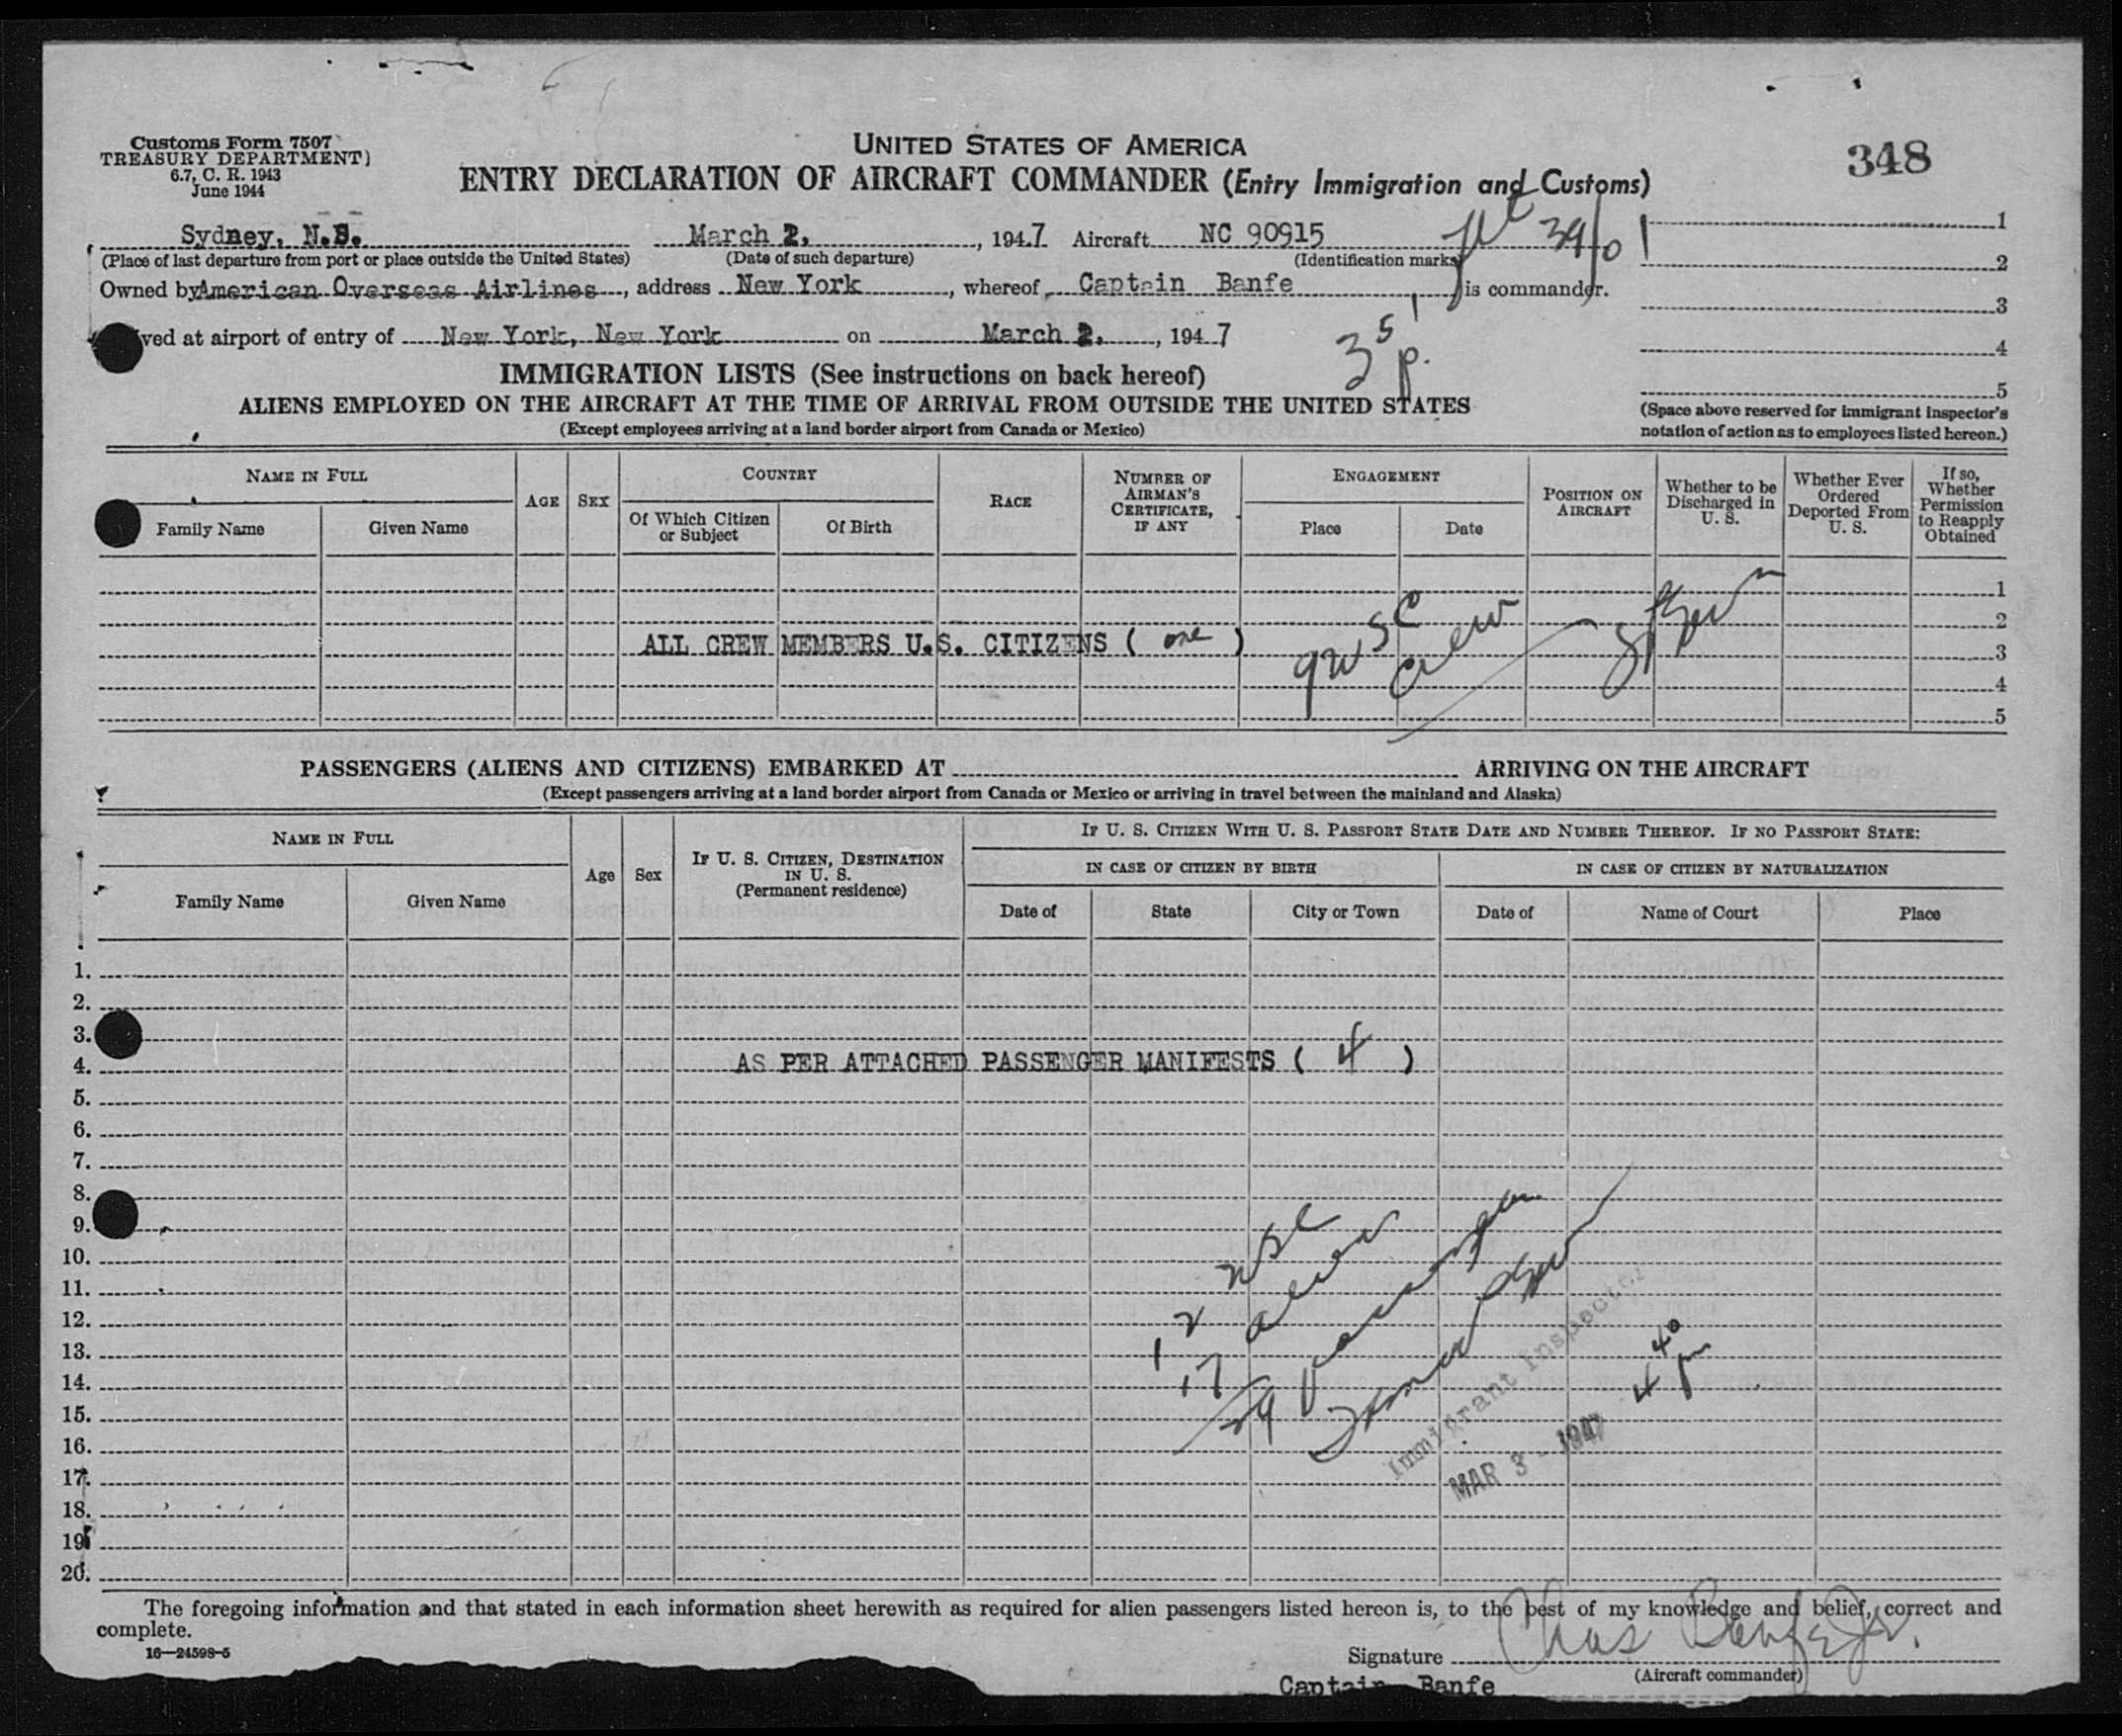 Customs Form 7507
TREASURY DEPARTMENT)
6.7, C. R. 1943
June 1944
UNITED STATES OF AMERICA
ENTRY DECLARATION OF AIRCRAFT COMMANDER (Entry Immigration and Customs)
348
Sydney, N.S. March 2, 1947 Aircraft NC 90915
(Place of last departure from port or place outside the United States) (Date of such departure) (Identification marks)
Owned by American Overseas Airlines, address New York, whereof Captain Banfe is commander.
ved at airport of entry of New York, New York on March 2, 1947
35 p.
1
2
3
4
5
(Space above reserved for immigrant inspector's
notation of action as to employees listed hereon.)
IMMIGRATION LISTS (See instructions on back hereof)
ALIENS EMPLOYED ON THE AIRCRAFT AT THE TIME OF ARRIVAL FROM OUTSIDE THE UNITED STATES
(Except employees arriving at a land border airport from Canada or Mexico)
NAME IN FULL AGE SEX COUNTRY RACE NUMBER OF AIRMAN'S CERTIFICATE, IF ANY ENGAGEMENT POSITION ON AIRCRAFT Whether to be Discharged in U. S. Whether Ever Ordered Deported From U. S. If so, Whether Permission to Reapply Obtained
Family Name Given Name Of Which Citizen or Subject Of Birth Place Date
1
2
ALL CREW MEMBERS U.S. CITIZENS ( one ) 3
4
5
9 USC
Crew
PASSENGERS (ALIENS AND CITIZENS) EMBARKED AT ARRIVING ON THE AIRCRAFT
(Except passengers arriving at a land border airport from Canada or Mexico or arriving in travel between the mainland and Alaska)
NAME IN FULL Age Sex IF U. S. CITIZEN, DESTINATION IN U. S. (Permanent residence) IF U. S. CITIZEN WITH U. S. PASSPORT STATE DATE AND NUMBER THEREOF. IF NO PASSPORT STATE:
IN CASE OF CITIZEN BY BIRTH IN CASE OF CITIZEN BY NATURALIZATION
Family Name Given Name Date of State City or Town Date of Name of Court Place
1.
2.
3.
4. AS PER ATTACHED PASSENGER MANIFESTS ( 4 )
5.
6.
7.
8.
9.
10.
11.
12.
13.
14.
15.
16.
17.
18.
19.
20.
12 USC
17 alien
29
Immigrant Inspector
MAR 3 - 1947
4 40 pm
The foregoing information and that stated in each information sheet herewith as required for alien passengers listed hereon is, to the best of my knowledge and belief, correct and
complete.
16—24598-5
Signature Chas Banfe Jr.
(Aircraft commander)
Captain Banfe